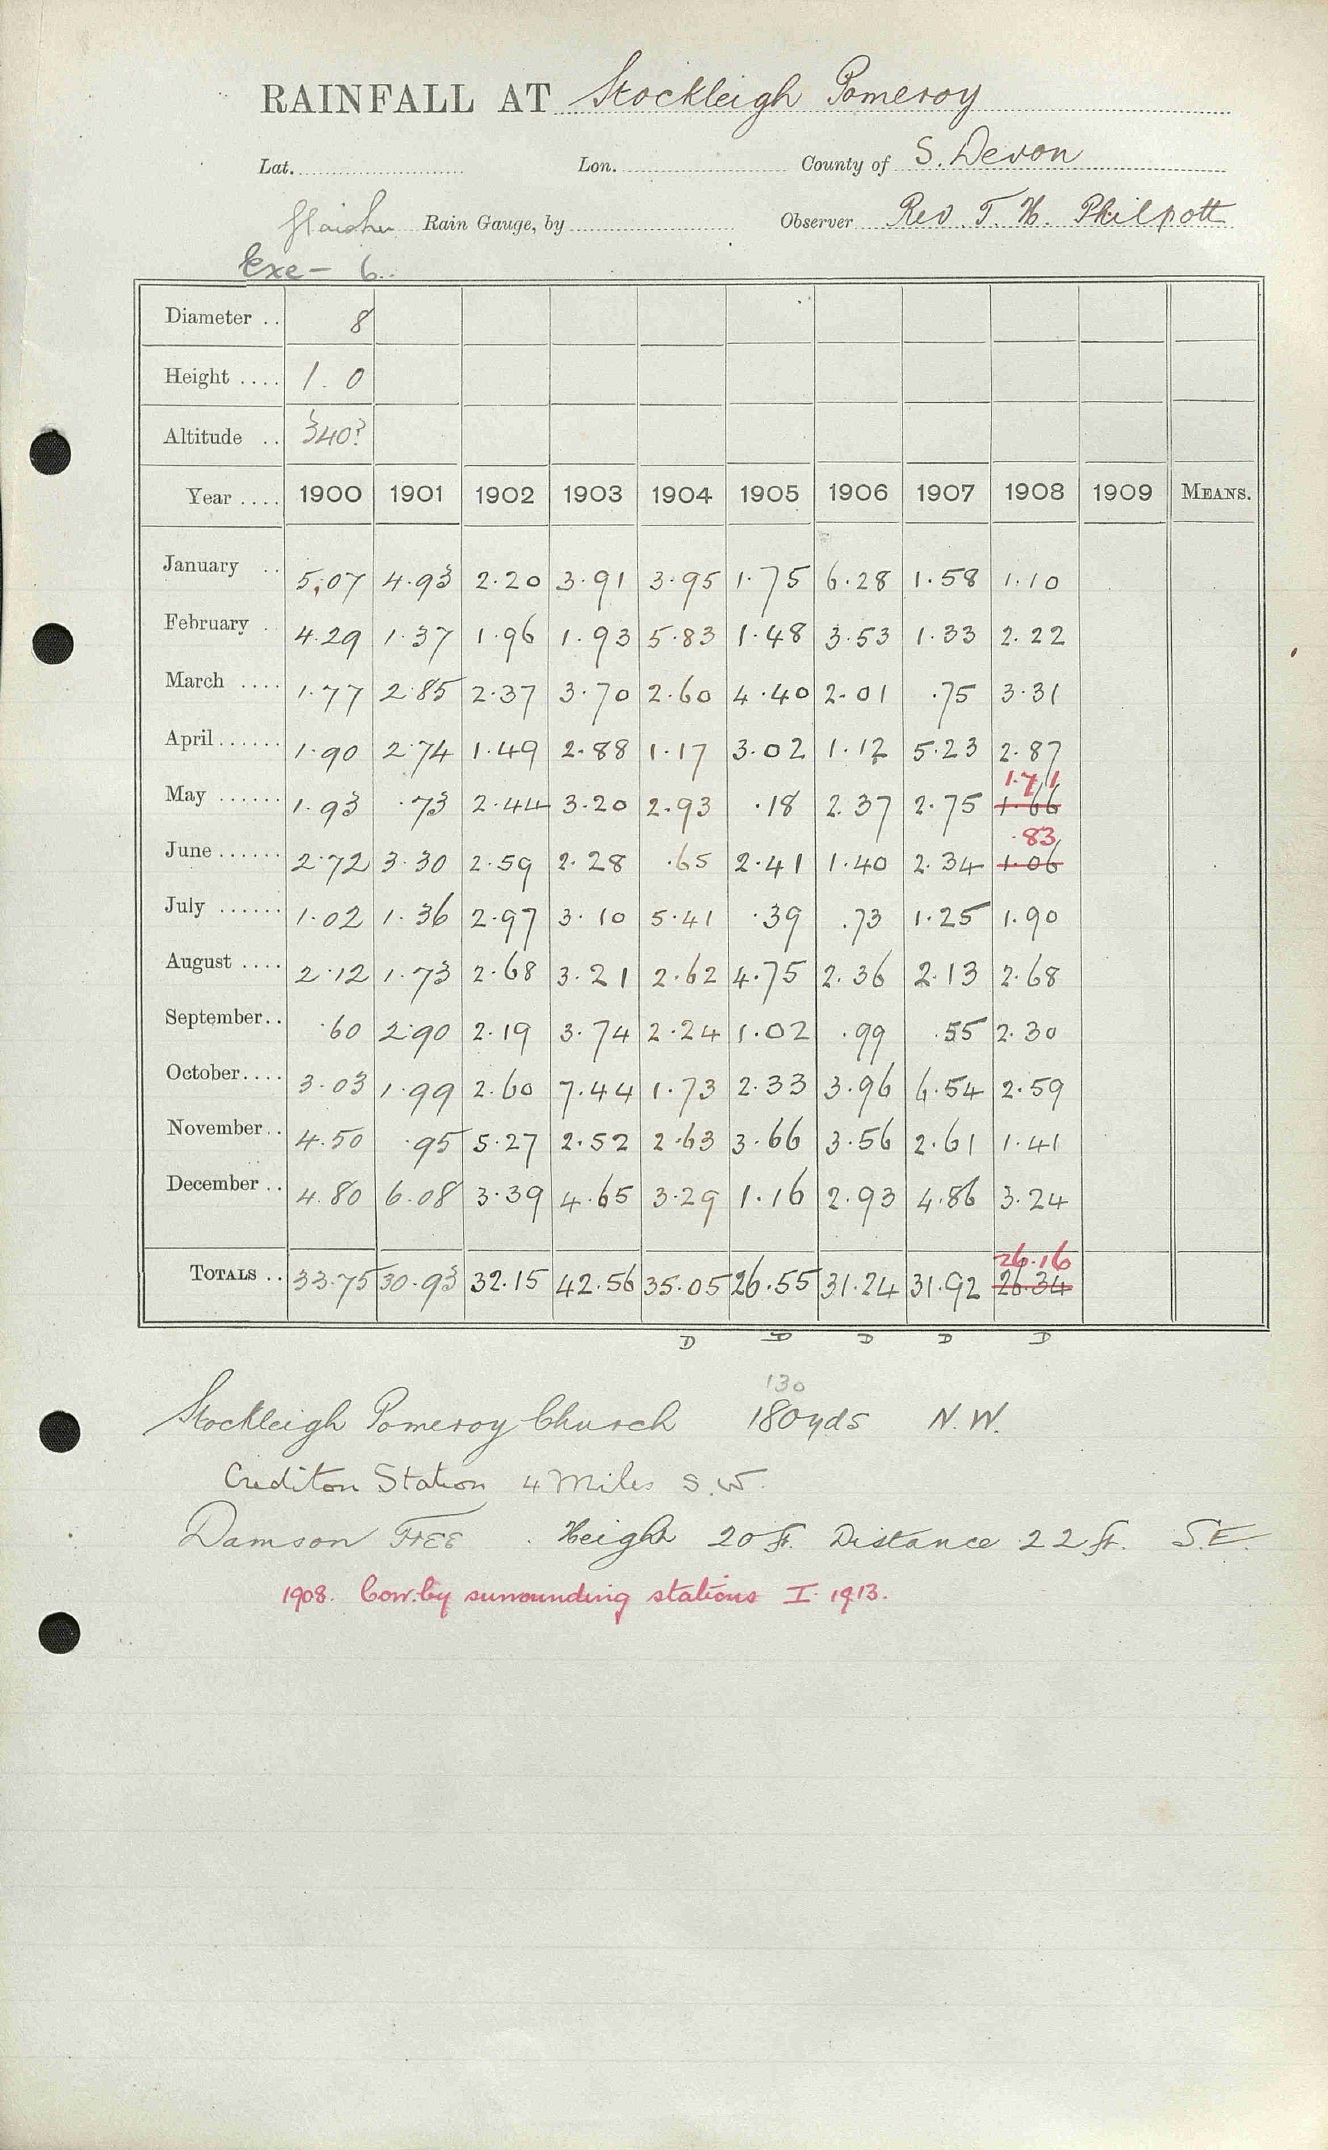 RAINFALL AT Stockleigh Pomeroy
Lat. Lon. County of S. Devon
Glaisher Rain Gauge, by Observer Rev. T. H. Philpott
Exe - 6.
Diameter .. 8
Height .... 1. 0
Altitude .. 340?
Year .... 1900 1901 1902 1903 1904 1905 1906 1907 1908 1909 MEANS.
January .. 5.07 4.93 2.20 3.91 3.95 1.75 6.28 1.58 1.10
February .. 4.29 1.37 1.96 1.93 5.83 1.48 3.53 1.33 2.22
March .... 1.77 2.85 2.37 3.70 2.60 4.40 2.01 .75 3.31
April...... 1.90 2.74 1.49 2.88 1.17 3.02 1.12 5.23 2.87
1.71
May ...... 1.93 .73 2.44 3.20 2.93 .18 2.37 2.75 1.66
.83
June ...... 2.72 3.30 2.59 2.28 .65 2.41 1.40 2.34 1.06
July ...... 1.02 1.36 2.97 3.10 5.41 .39 .73 1.25 1.90
August .... 2.12 1.73 2.68 3.21 2.62 4.75 2.36 2.13 2.68
September.. .60 2.90 2.19 3.74 2.24 1.02 .99 .55 2.30
October.... 3.03 1.99 2.60 7.44 1.73 2.33 3.96 6.54 2.59
November.. 4.50 .95 5.27 2.52 2.63 3.66 3.56 2.61 1.41
December .. 4.80 6.08 3.39 4.65 3.29 1.16 2.93 4.86 3.24
26.16
TOTALS .. 33.75 30.93 32.15 42.56 35.05 26.55 31.24 31.92 26.34
D D D D D
130
Stockleigh Pomeroy Church 180yds N.W.
Crediton Station 4 Miles S.W.
Damson Tree. Height 20 ft. Distance 22 ft. S.E.
1908. Corr. by surrounding stations I. 1913.